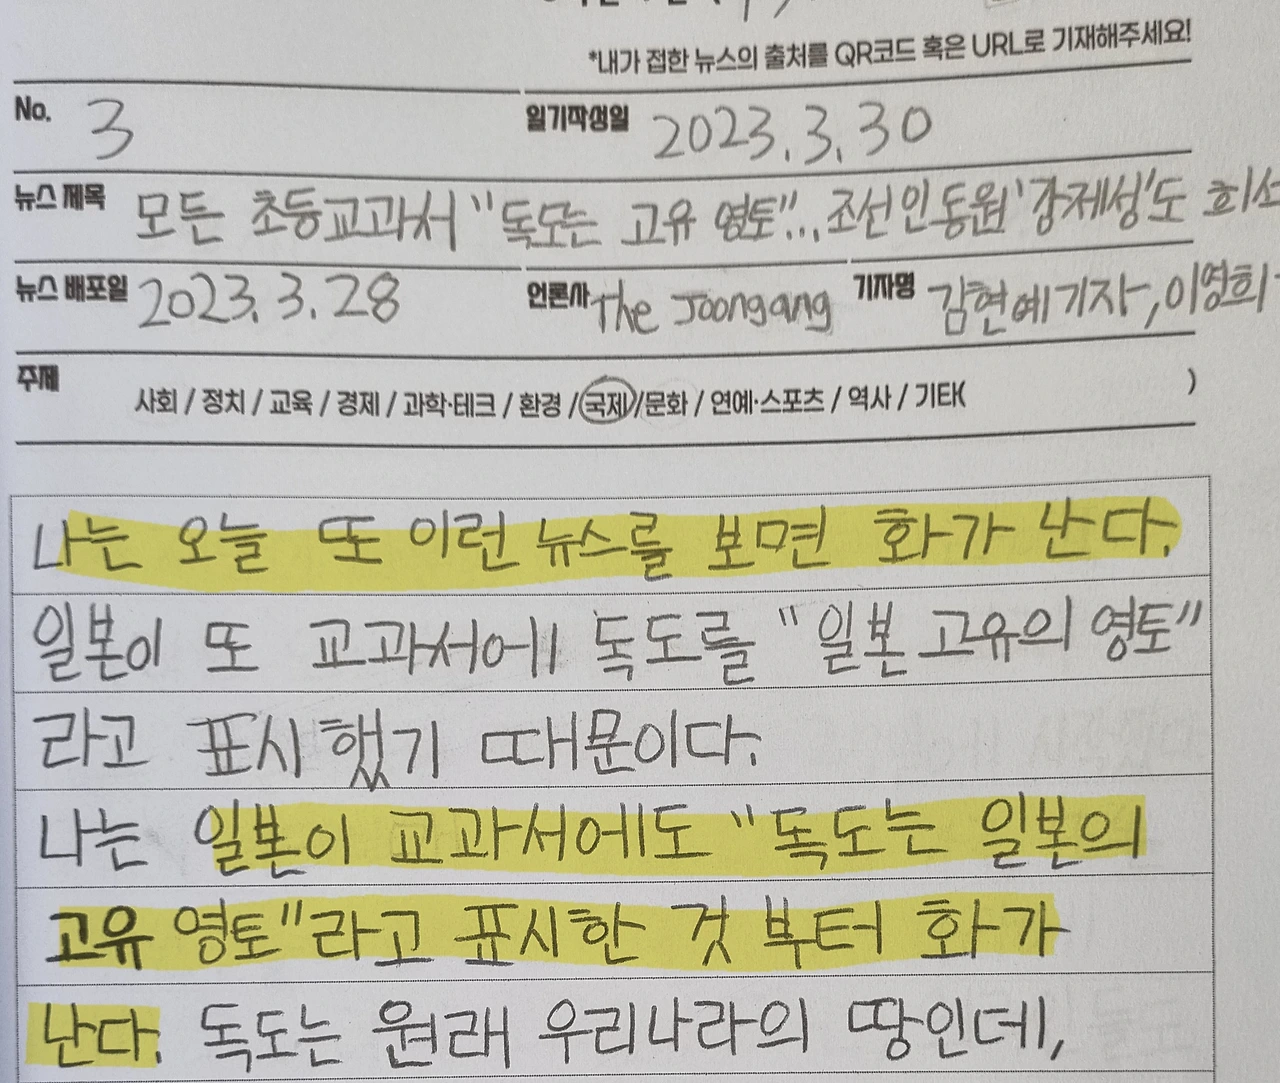 *내가 접한 뉴스의 출처를 QR코드 혹은 URL로 기재해주세요!
No. 3 일기작성일 2023.3.30
뉴스 제목 모든 초등교과서 "독도는 고유 영토"...조선인동원 '강제성'도 희석
뉴스 배포일 2023.3.28 언론사 The Joongang 기자명 김현예기자, 이영희
주제 사회 / 정치 / 교육 / 경제 / 과학·테크 / 환경 / 국제 / 문화 / 연예·스포츠 / 역사 / 기타( )
나는 오늘 또 이런 뉴스를 보면 화가 난다.
일본이 또 교과서에 독도를 "일본 고유의 영토"
라고 표시했기 때문이다.
나는 일본이 교과서에도 "독도는 일본의
고유 영토"라고 표시한 것 부터 화가
난다. 독도는 원래 우리나라의 땅인데,